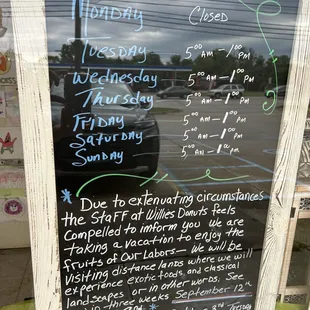 Monday Closed
Tuesday 5:00 AM - 1:00 PM
Wednesday 5:00 AM - 1:00 PM
Thursday 5:00 AM - 1:00 PM
Friday 5:00 AM - 1:00 PM
Saturday 5:00 AM - 1:00 PM
Sunday 5:00 AM - 1:00 PM
* Due to extenuating circumstances
the Staff at Willies Donuts feels
compelled to inform you we are
taking a vacation to enjoy the
fruits of our Labors — We will be
visiting distance lands where we will
experience exotic foods and classical
landscapes or in other words. See
three weeks September 12th
3rd Tuesday